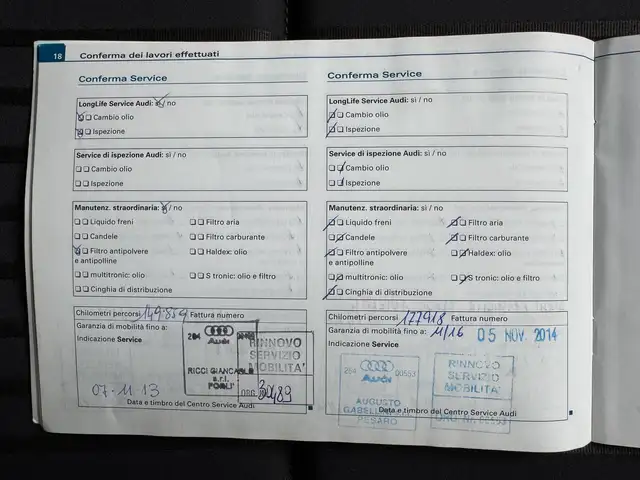 18 Conferma dei lavori effettuati
Conferma Service
LongLife Service Audi: sì / no
Cambio olio
Ispezione
Service di ispezione Audi: sì / no
Cambio olio
Ispezione
Manutenz. straordinaria: sì / no
Liquido freni Filtro aria
Candele Filtro carburante
Filtro antipolvere e antipolline Haldex: olio
multitronic: olio S tronic: olio e filtro
Cinghia di distribuzione
Chilometri percorsi 149.859 Fattura numero
Garanzia di mobilità fino a:
Indicazione Service
284
Audi
RICCI GIANCARLO
s.r.l.
RINNOVO
SERVIZIO
MOBILITA'
ORG.
07-11 13
Data e timbro del Centro Service Audi
Conferma Service
LongLife Service Audi: sì / no
Cambio olio
Ispezione
Service di ispezione Audi: sì / no
Cambio olio
Ispezione
Manutenz. straordinaria: sì / no
Liquido freni Filtro aria
Candele Filtro carburante
Filtro antipolvere e antipolline Haldex: olio
multitronic: olio S tronic: olio e filtro
Cinghia di distribuzione
Chilometri percorsi 177918 Fattura numero
Garanzia di mobilità fino a: 11/16 05 NOV. 2014
Indicazione Service
284 00593
Audi
AUGUSTO
PESARO
RINNOVO
SERVIZIO
MOBILITA'
Data e timbro del Centro Service Audi